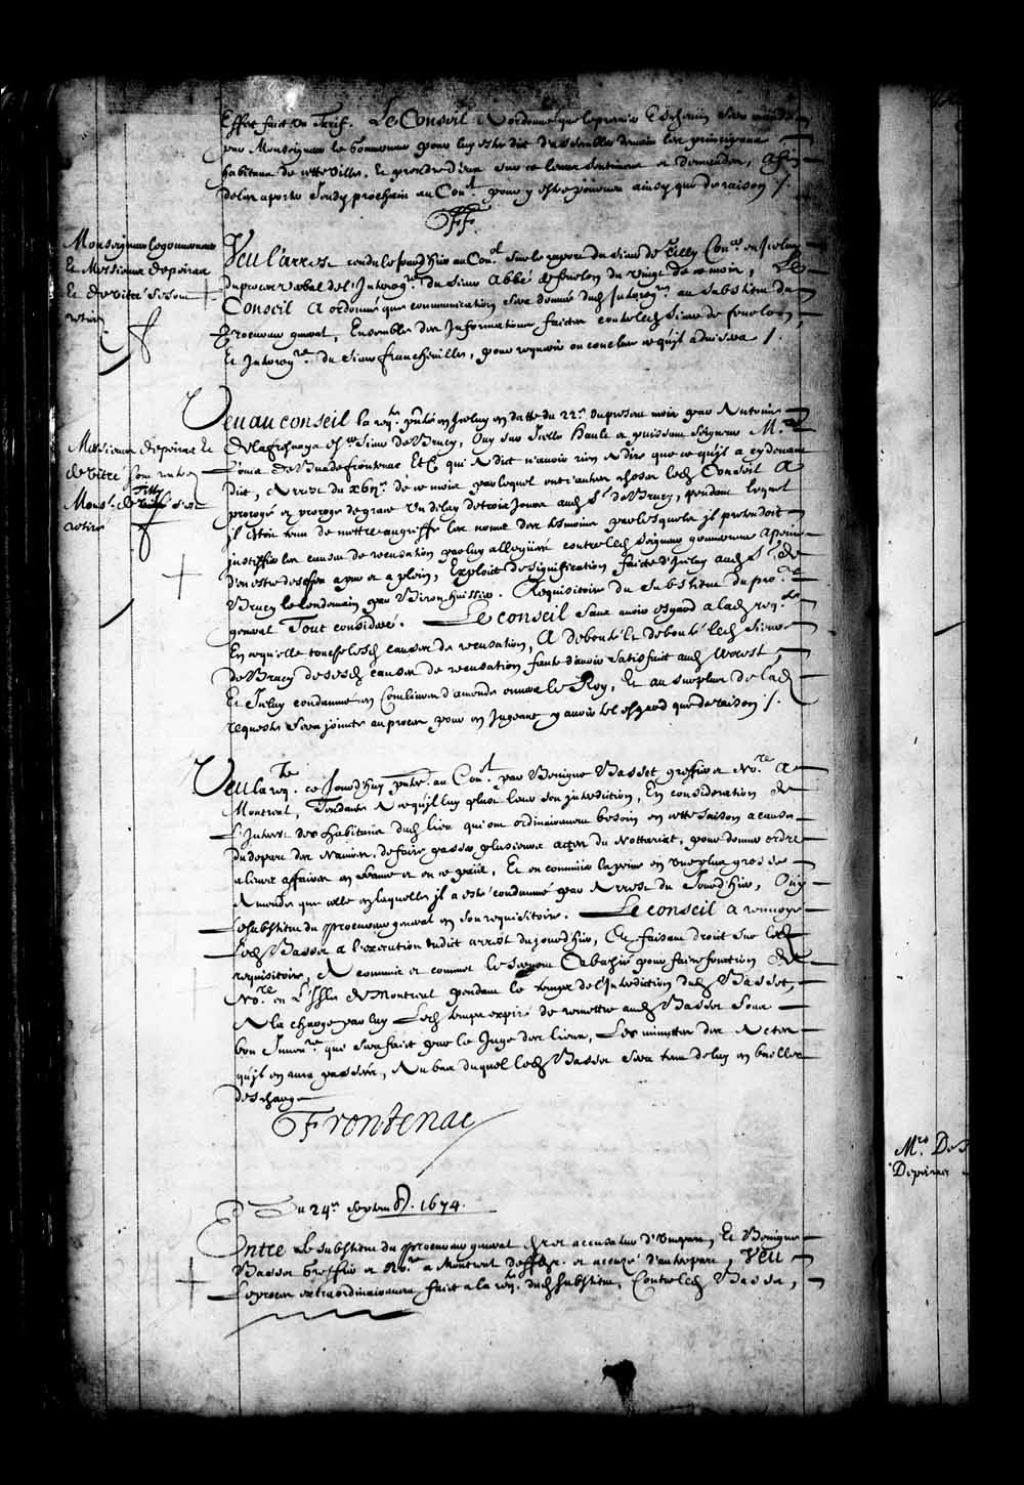 Effet fait un Tarif. Le Conseil A ordonné que le premier Eschevin sera mandé
par Monseigneur le Gouverneur pour luy estre dit d'assembler demain les principaux
habitans de cette Ville, Et prendre d'eux sur ce leurs sentimens et demandes, afin
de les aporter Lundy prochain au Con.el pour y estre pourveu ainsy que de raison /.
FF.
Monseigneur le gouverneur
Et Messieurs Depeiras
Et de Vitré se sont
retirez
Veu l'arrest rendu le jourd'huy au Con.el sur le raport du sieur de Tilly Con.er en iceluy
du procez verbal de l'Interog.re du sieur Abbé de fenelon du vingt de ce mois, Le
Conseil A ordonné que communication sera donnée dud Interog.re au substitut du
Procureur general, Ensemble des Informations faictes contre led sieur de fenelon,
Et Interog.re du sieur francheville, pour requerir ou conclure ce qu'il advisera /.
Messieurs depeiras Et
de Vitré sont rentrez
Mons.r de Tilly s'est
retiré
Veu au conseil la req.te pntée en iceluy en datte du 22.e du present mois par Antoine
de la fresnaye Sieur de Brucy, Ouy sur Icelle Haut et puissant Seigneur M.re
Louis de Buade frontenac Et.a qui A dict n'avoir rien A dire que ce qu'il a cy devant
dict, Arrest du xbij.e de ce mois par lequel entr'autres choses led Conseil A
prorogé et proroge de grace Un delay de trois jours aud s.r de Brucy, pendant lequel
il seroit tenu de mettre au greffe les noms des tesmoins par lesquels il pretendoit
justiffier les causes de recusation par luy alleguées contre led Seigneur gouverneur a peine
d'en estre descheu a pur et a plein, Exploit de signification faicte d'iceluy aud s.r de
Brucy le lendemain par Biron huissier. Requisitoire du substitut du pro.r
general Tout consideré. Le conseil sans avoir esgard a lad req.te
En ce qu'elle touche lesd causes de recusation, A debouté Et deboute led sieur
de Brucy de sesd causes de recusation faute d'avoir satisfait aud arrest,
Et Iceluy condamné en Cent livres d'amende envers le Roy, Et au surplus de lad
requeste sera jointe au procez pour en Jugeant y avoir tel esgard que de raison /.
Veu la req.te ce jourd'huy pntée au Con.el par Benigne Basset greffier et No.re A
Montreal, Tendante A ce qu'il luy plust lever son jnterdiction, En consideration de
L'Interest des habitans dud lieu qui ont ordinairement besoin en cette saison a cause
du depart des Navires, de faire passer plusieurs actes du Nottariat, pour donner ordre
a leurs affaires en france et en ce païs, Et en commüer la peine en une plus grosse
Amende que celle en laquelle il a esté condamné par Arrest du Jourd'huy, Ouy
Le substitut du procureur general en son requisitoire. Le conseil a renvoyé
Led Basset a l'execution dudit arrest du jourd'huy, Et faisant droit sur led
requisitoire, A commis et commet le sieur Cabazié pour faire fonction de
No.re en L'Isle de Montreal pendant le temps de l'Interdiction dud Basset,
A la charge par luy Led temps expiré de remettre aud Basset sous
bon Inven.re qui sera fait par le Juge des lieux, Les minuttes des Actes
qu'il en aura passées, Au bas duquel led Basset sera tenu de luy en bailler
descharge
Frontenac
Du 24.e septemb. 1674.
Entre Le substitut du procureur general accusateur d'une part, Et Benigne
Basset Greffier et No.re a Montreal deffend.r et accusé d'autre part, Veu
Le procez extraordinairement faict a la req.te dud substitut, Contre led Basset,
M.rs De
Depeiras